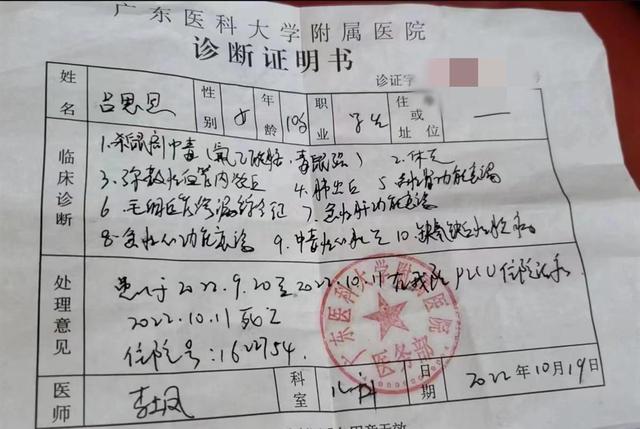 广东医科大学附属医院
诊断证明书
诊证字 号
姓名 吕思恩 性别 女 年龄 10岁 职业 学生 住址或单位 —
临床诊断 1.杀鼠剂中毒(氟乙酰胺、毒鼠强) 2.休克
3.弥散性血管内凝血 4.肺出血 5.急性肾功能衰竭
6.毛细血管渗漏综合征 7.急性肝功能衰竭
8.急性心功能衰竭 9.中毒性心肌炎 10.缺氧缺血性脑病
处理意见 患儿于2022.9.20至2022.10.11在我院PICU住院治疗
2022.10.11死亡
住院号:1622754.
广东医科大学附属医院
医务部
医师 科室 儿科 日期 2022年10月19日